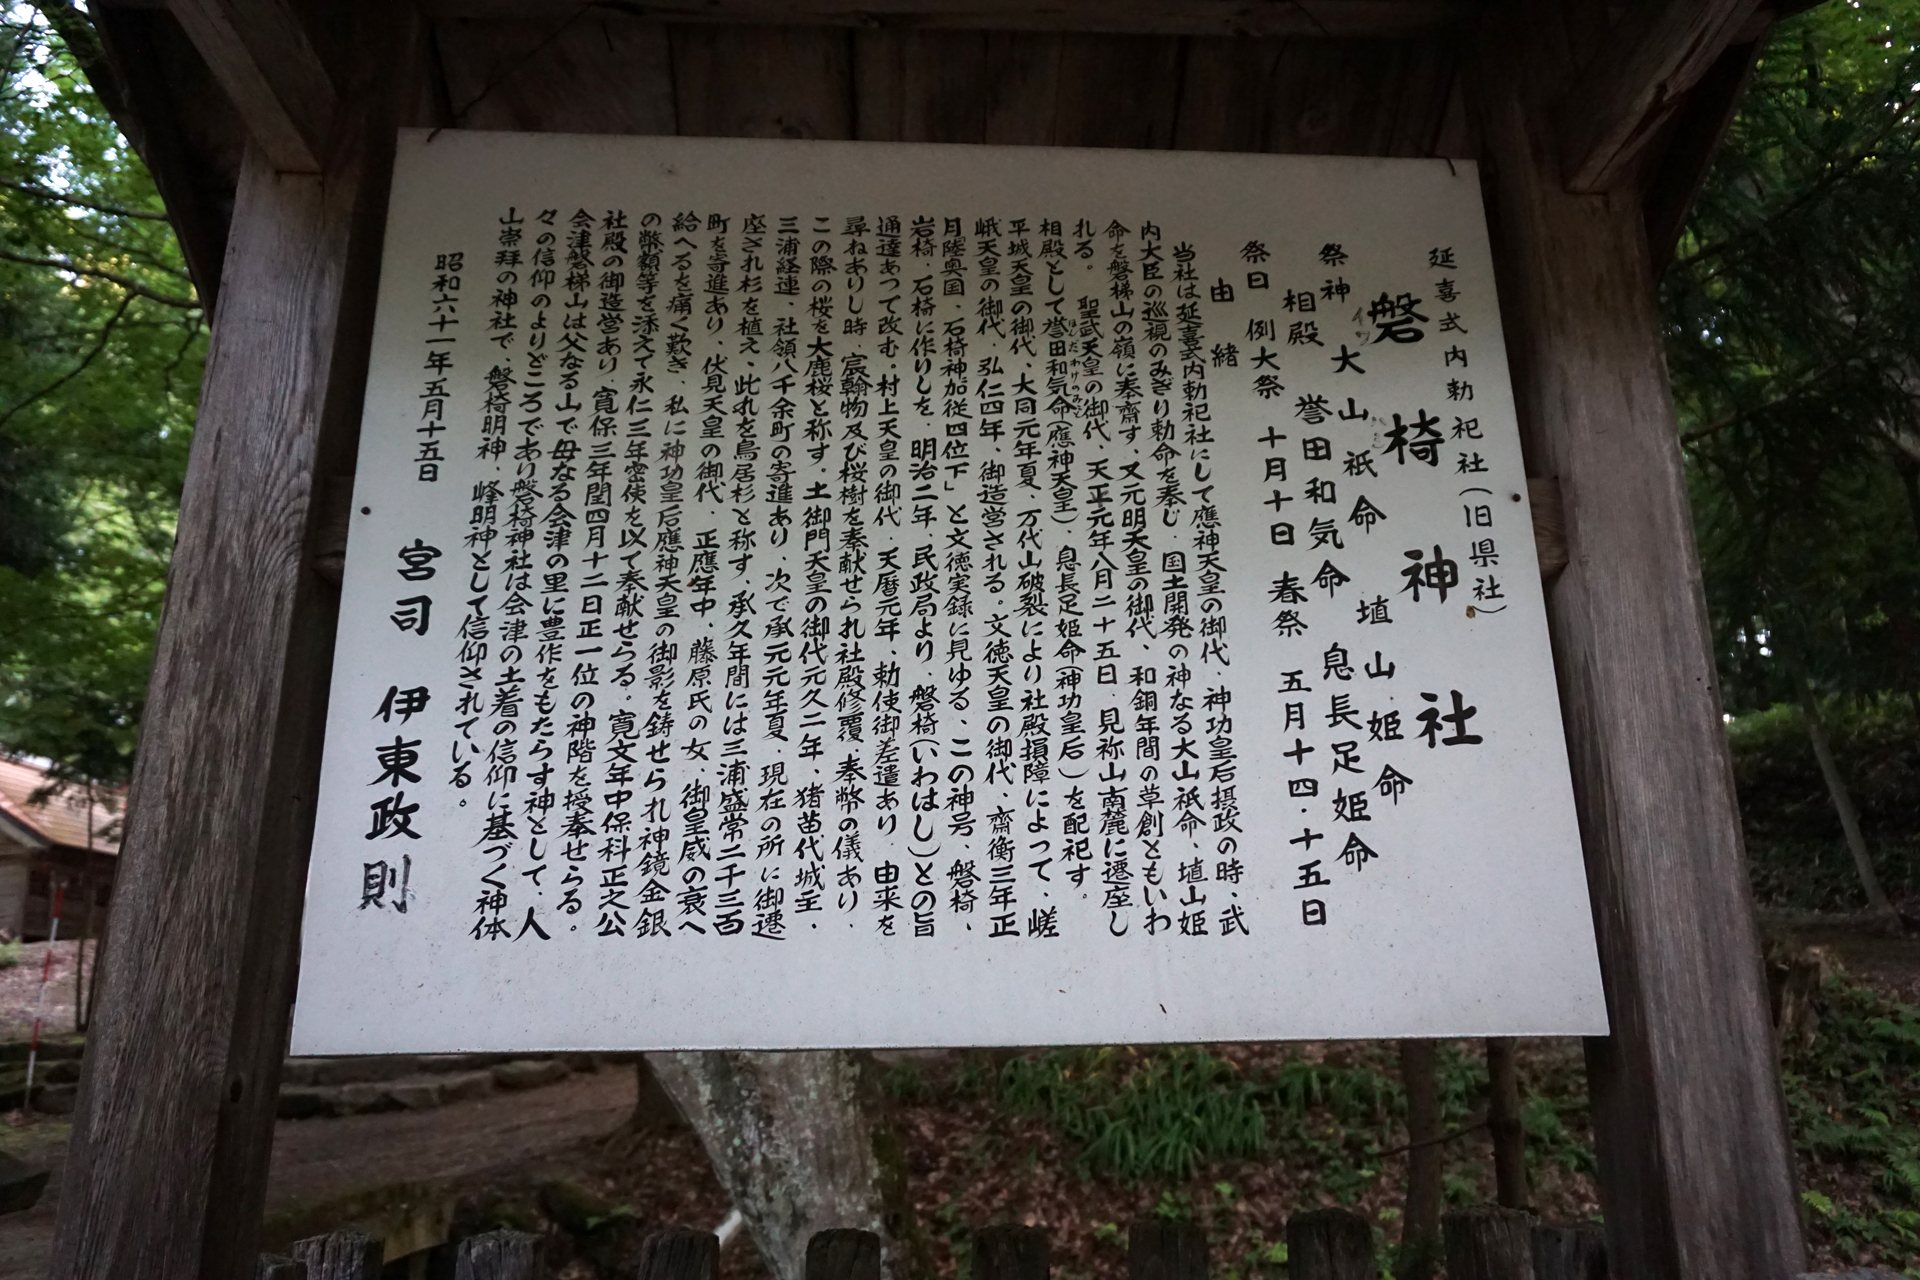 延喜式内勅祀社(旧県社)
磐椅神社
祭神 大山祇命 埴山姫命
相殿 誉田和気命 息長足姫命
祭日 例大祭 十月十日 春祭 五月十四・十五日
由緒
当社は延喜式内勅祀社にして應神天皇の御代、神功皇后摂政の時、武
内大臣の巡視のみぎり勅命を奉じ、国土開発の神なる大山祇命、埴山姫
命を磐梯山の嶺に奉齋す、又元明天皇の御代、和銅年間の草創ともいわ
れる。 聖武天皇の御代、天正元年八月二十五日、見祢山南麓に遷座し
相殿として誉田和気命(應神天皇)、息長足姫命(神功皇后)を配祀す。
ほんだわけのみこと
平城天皇の御代、大同元年夏、万代山破裂により社殿損障によって、嵯
峨天皇の御代、弘仁四年、御造営される。文徳天皇の御代、齋衡三年正
月陸奥国、石椅神加従四位下」と文徳実録に見ゆる、この神号、磐椅、
岩椅、石椅に作りしを、明治二年、民政局より、磐椅(いわはし)との旨
通達あって改む。村上天皇の御代、天暦元年、勅使御差遣あり、由来を
尋ねありし時、宸翰物及び桜樹を奉献せられ社殿修覆、奉幣の儀あり、
この際の桜を大鹿桜と称す。土御門天皇の御代元久二年、猪苗代城主、
三浦経連、社領八千余町の寄進あり、次で承元元年夏、現在の所に御遷
座され杉を植え、此れを鳥居杉と称す、承久年間には三浦盛常二千三百
町を寄進あり、伏見天皇の御代、正應年中、藤原氏の女、御皇威の衰へ
給へるを痛く歎き、私に神功皇后應神天皇の御影を鋳せられ神鏡金銀
の幣額等を添えて永仁三年密使を以て奉献せらる。寛文年中保科正之公
社殿の御造営あり、寛保三年閏四月十二日正一位の神階を授奉せらる。
会津磐梯山は父なる山で母なる会津の里に豊作をもたらす神として、人
々の信仰のよりどころであり磐椅神社は会津の土着の信仰に基づく神体
山崇拝の神社で、磐椅明神、峰明神として信仰されている。
昭和六十一年五月十五日
宮司 伊東政則